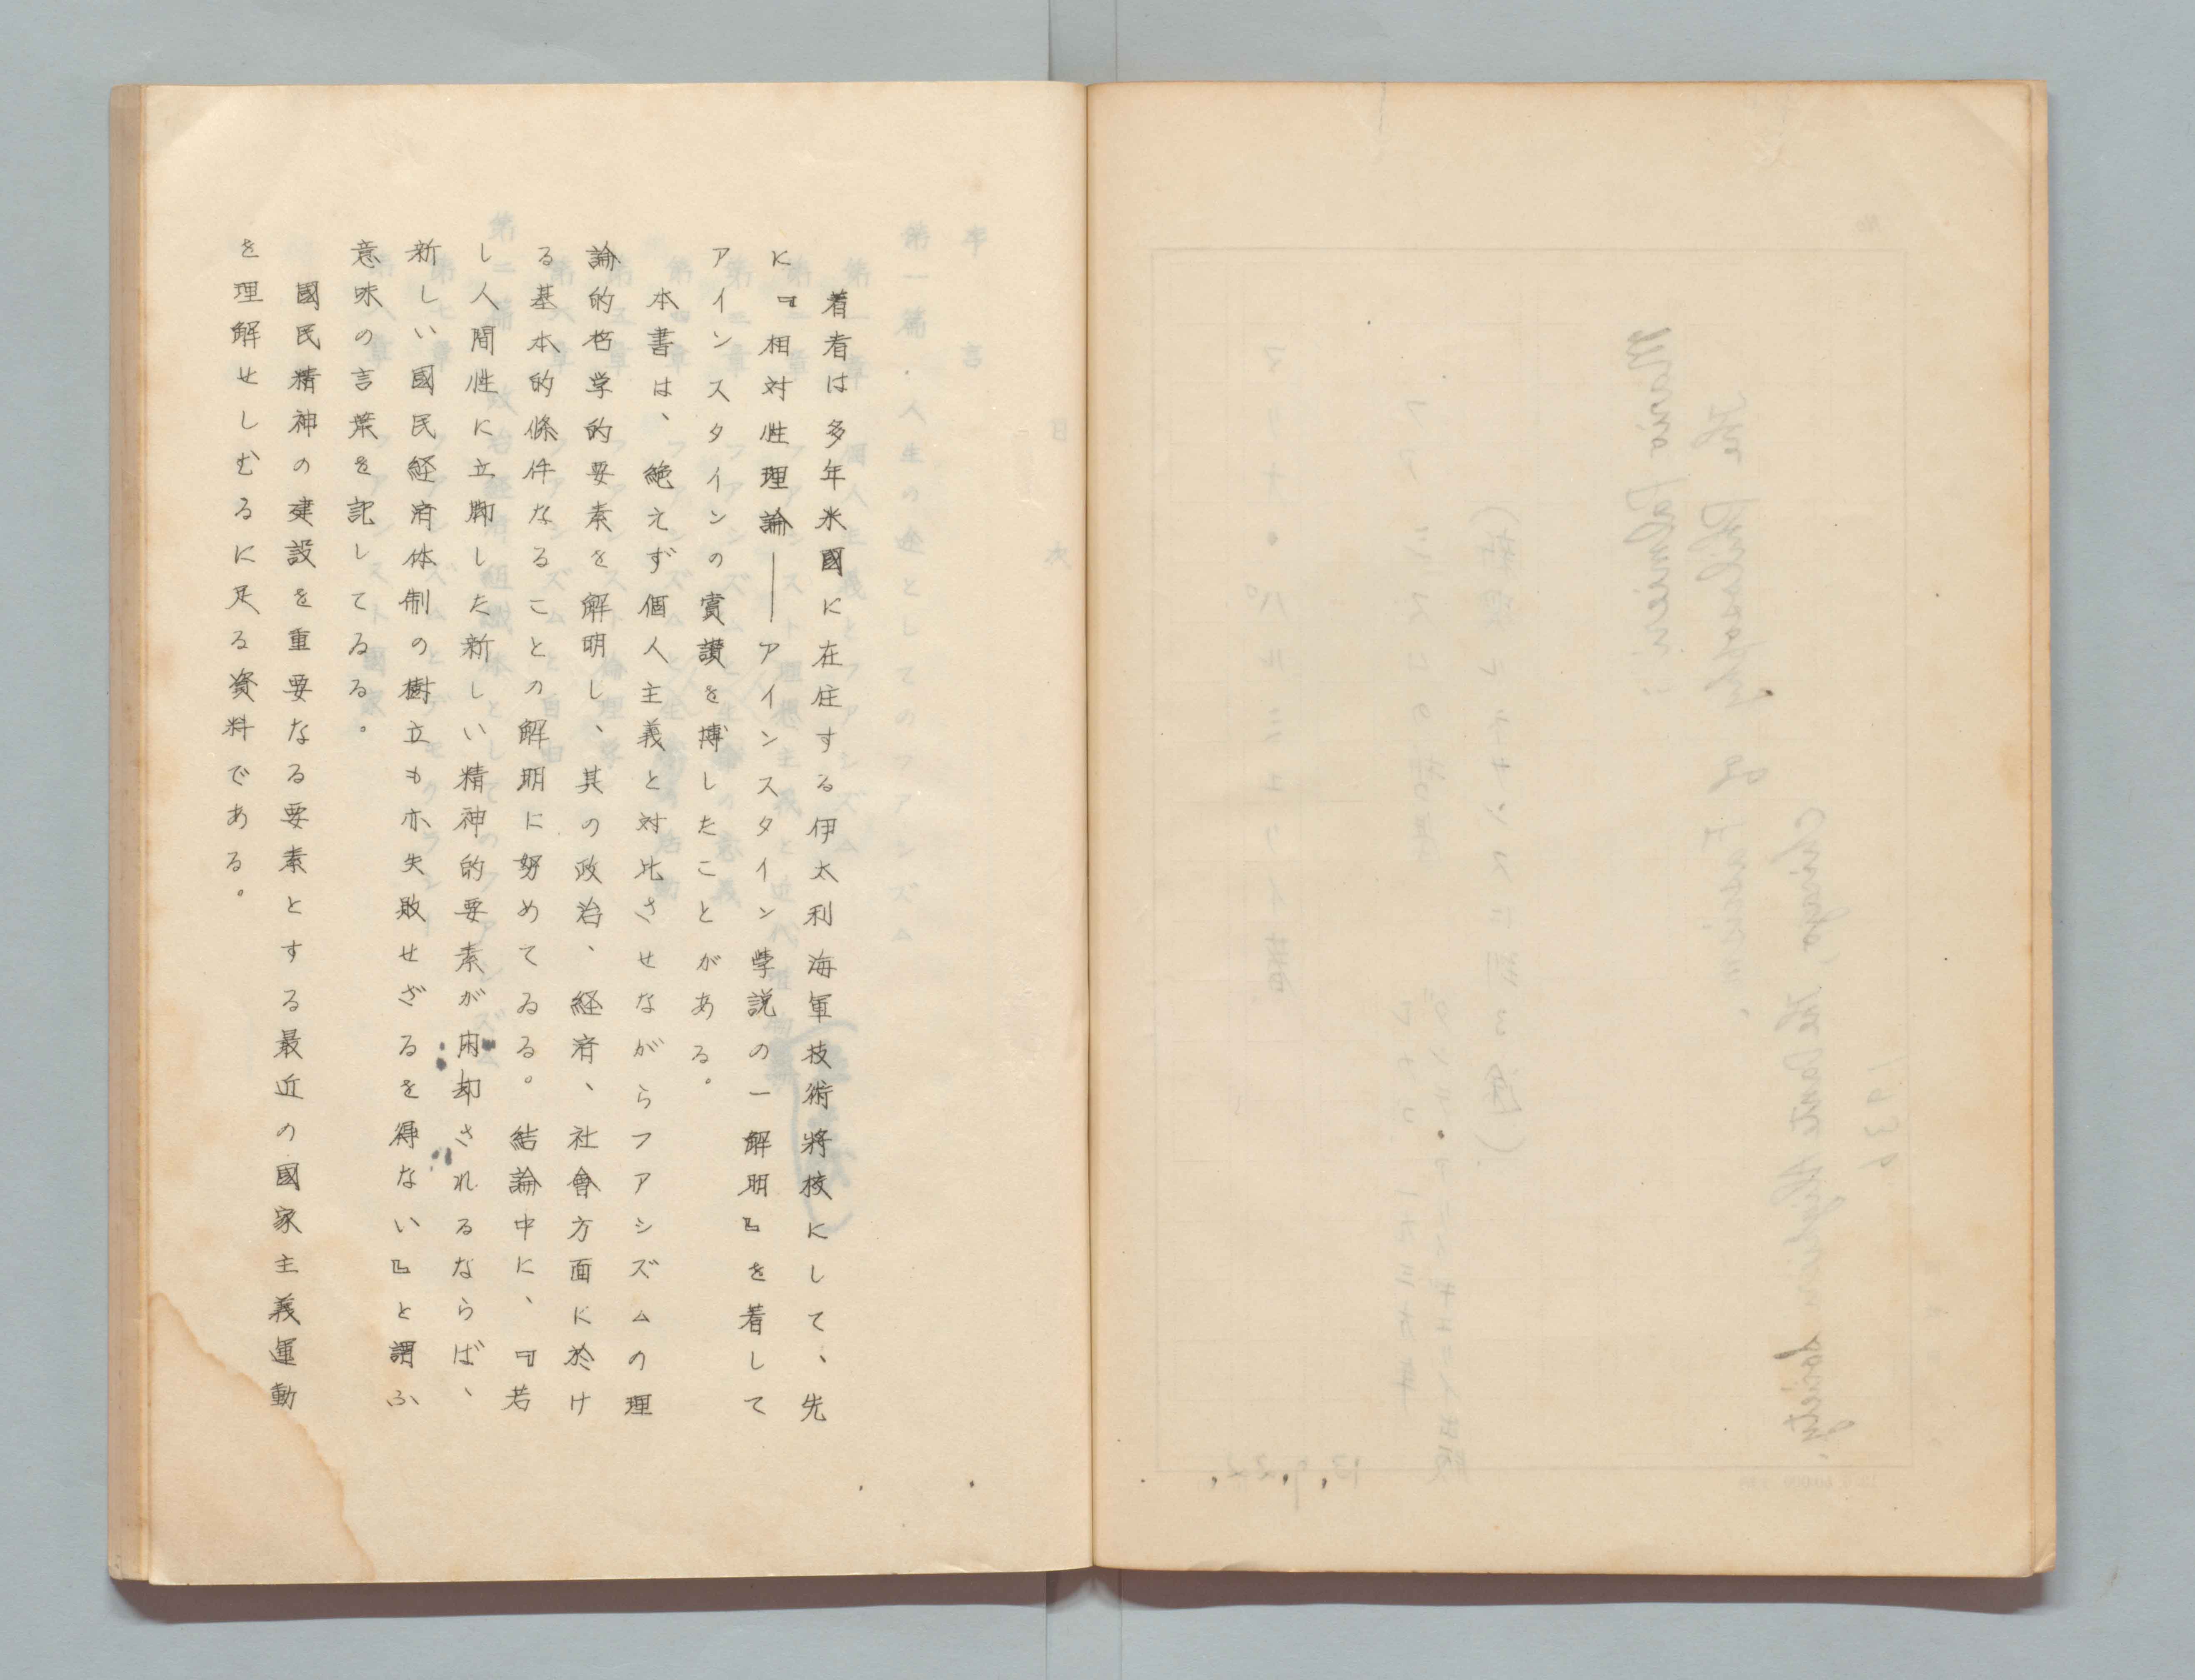 著者は多年米國に在住する伊太利海軍技術將校にして、先
に『相対性理論──アインスタイン学説の一解明』を著して
アインスタインの賞讃を博したことがある。
本書は、絶えず個人主義と対比させながらファシズムの理
論的哲学的要素を解明し、其の政治、経済、社會方面に於け
る基本的條件なることの解明に努めてゐる。結論中に、『若
し人間性に立脚した新しい精神的要素が困却されるならば、
新しい國民経済体制の樹立も亦失敗せざるを得ない』と謂ふ
意味の言葉を記してゐる。
國民精神の建設を重要なる要素とする最近の國家主義運動
を理解せしむるに足る資料である。